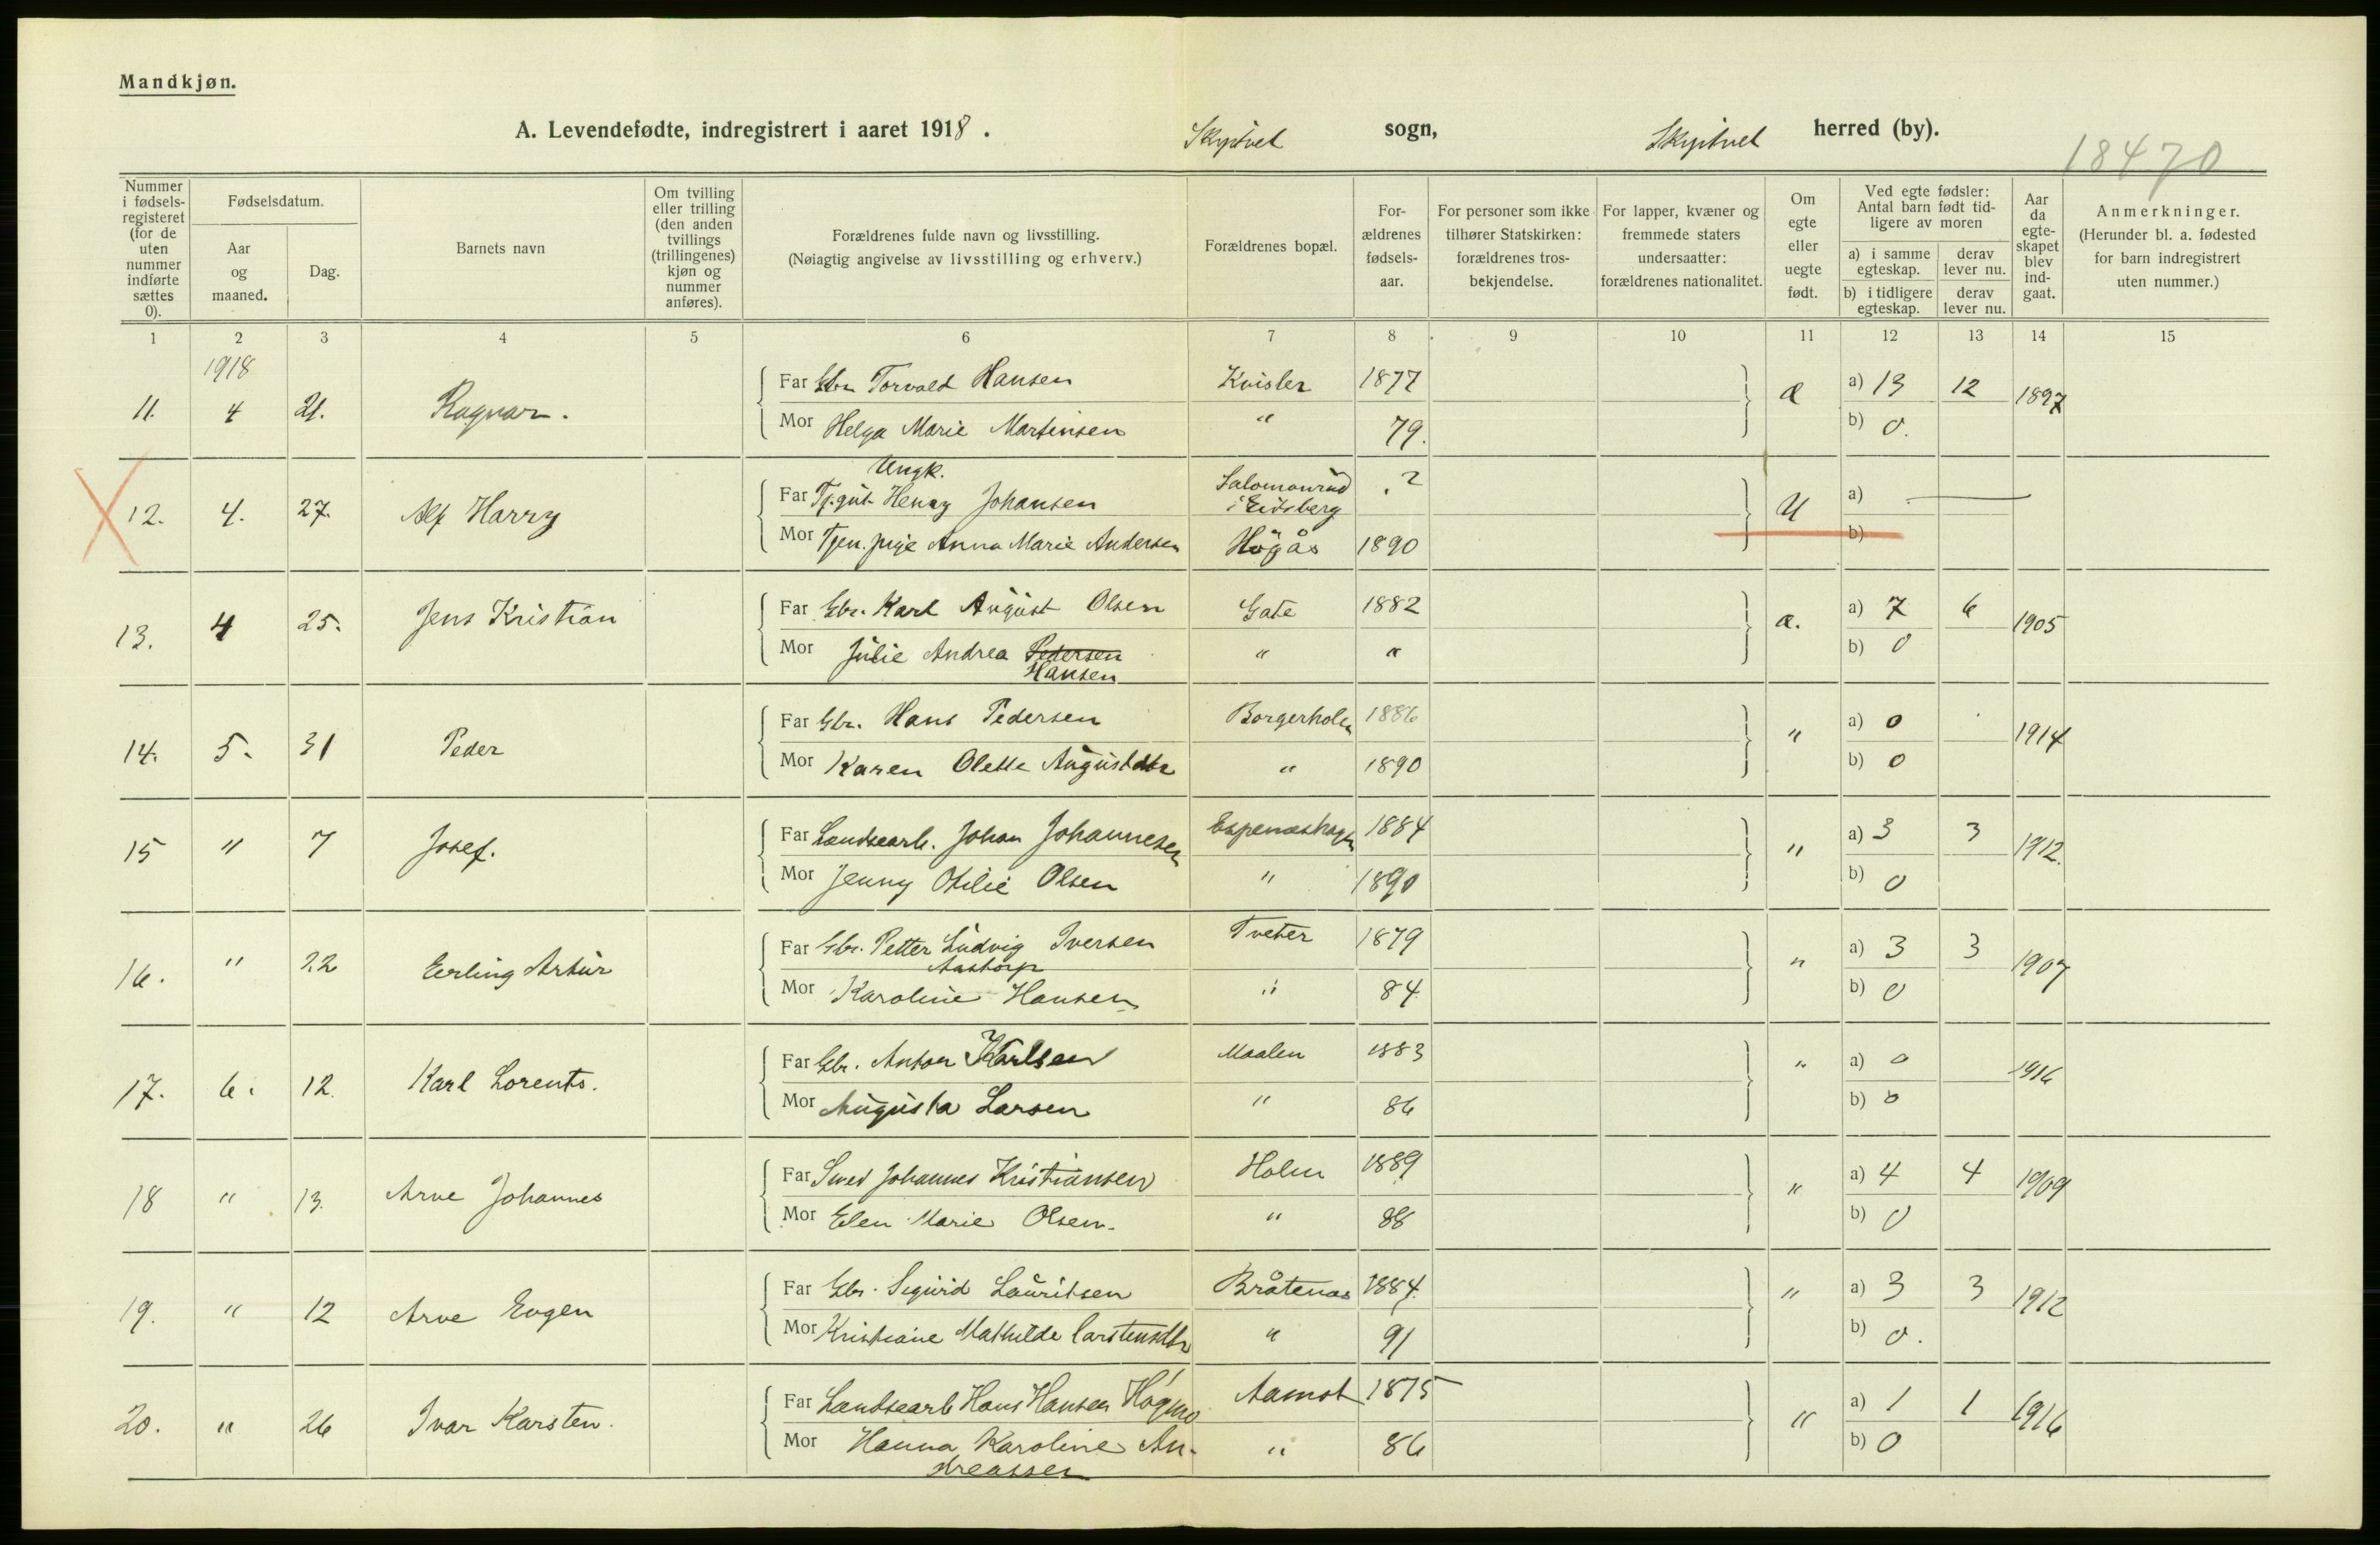 Mandkjøn.
A. Levendefødte, indregistrert i aaret 1918. Skiptvet sogn, Skiptvet herred (by).
18470
Nummer i fødselsregisteret (for de uten nummer indførte sættes 0).
Fødselsdatum.
Aar og maaned.
Dag.
Barnets navn
Om tvilling eller trilling (den anden tvillings (trillingenes) kjøn og nummer anføres).
Forældrenes fulde navn og livsstilling.
(Nøiagtig angivelse av livsstilling og erhverv.)
Forældrenes bopæl.
Forældrenes fødselsaar.
For personer som ikke tilhører Statskirken: forældrenes trosbekjendelse.
For lapper, kvæner og fremmede staters undersaatter: forældrenes nationalitet.
Om egte eller uegte født.
Ved egte fødsler: Antal barn født tidligere av moren
a) i samme egteskap. derav lever nu.
b) i tidligere egteskap. derav lever nu.
Aar da egteskapet blev indgaat.
Anmerkninger.
(Herunder bl. a. fødested for barn indregistrert uten nummer.)
1 2 3 4 5 6 7 8 9 10 11 12 13 14 15
1918
11. 4 21. Ragnar. Far Gbr. Torvald Hansen Kvisler 1877 æ a) 13 12 1897
Mor Helga Marie Martinsen " 79. b) 0.
Ungk.
12. 4. 27. Alf Harry Far Tj.gut Henry Johansen Salomonrud i Eidsberg ? U a)
Mor Tjen.pige Anna Marie Andersen Högås 1890 b)
13. 4 25. Jens Kristian Far Gbr. Karl August Olsen Gate 1882 æ. a) 7 6 1905
Mor Julie Andrea Pedersen " " b) 0
Hansen
14. 5. 31 Peder Far Gbr. Hans Pedersen Borgerholen 1886 " a) 0 1914
Mor Karen Olette Augustdtr " 1890 b) 0
15 " 7 Josef. Far Landsearb. Johan Johannesen Espenæshagen 1884 " a) 3 3 1912.
Mor Jenny Otilie Olsen " 1890 b) 0
16. " 22 Eerling Artur Far Gbr. Petter Ludvig Iversen Tveter 1879 " a) 3 3 1907
Aastorp
Mor Karoline Hansen " 84 b) 0
17. 6. 12. Karl Lorents. Far Gbr. Anton Karlsen Maalen 1883 " a) 0 1916
Mor Augusta Larsen " 86 b) 0
18 " 13. Arve Johannes Far Smed Johannes Kristiansen Holm 1889 " a) 4 4 1909
Mor Elen Marie Olsen. " 88 b) 0
19. " 12 Arve Eugen Far Gbr. Sigurd Lauritsen Bråtenas 1884. " a) 3 3 1912
Mor Kristiane Mathilde Carstensdtr " 91 b) 0.
20. " 26 Ivar Karsten. Far Landsearb Hans Hansen Høgmo Aamot 1875 " a) 1 1 1916
Mor Hanna Karoline An- " 86 b) 0
dreassen